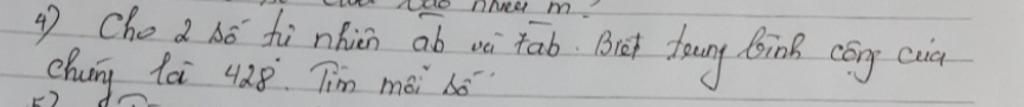 cao nhiêu m.
4) Cho 2 số tự nhiên ab và 7ab. Biết trung bình cộng của
chúng là 428. Tìm mỗi số
5)